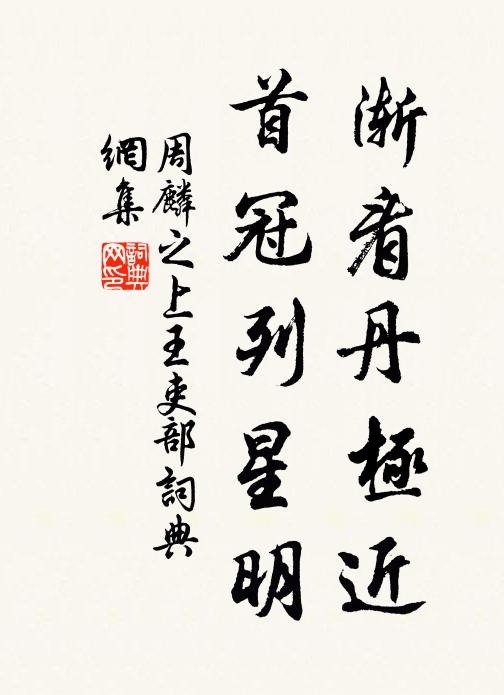 漸看丹極近
首冠列星明
周麟之上王吏部詞典
網集
詞典
网印